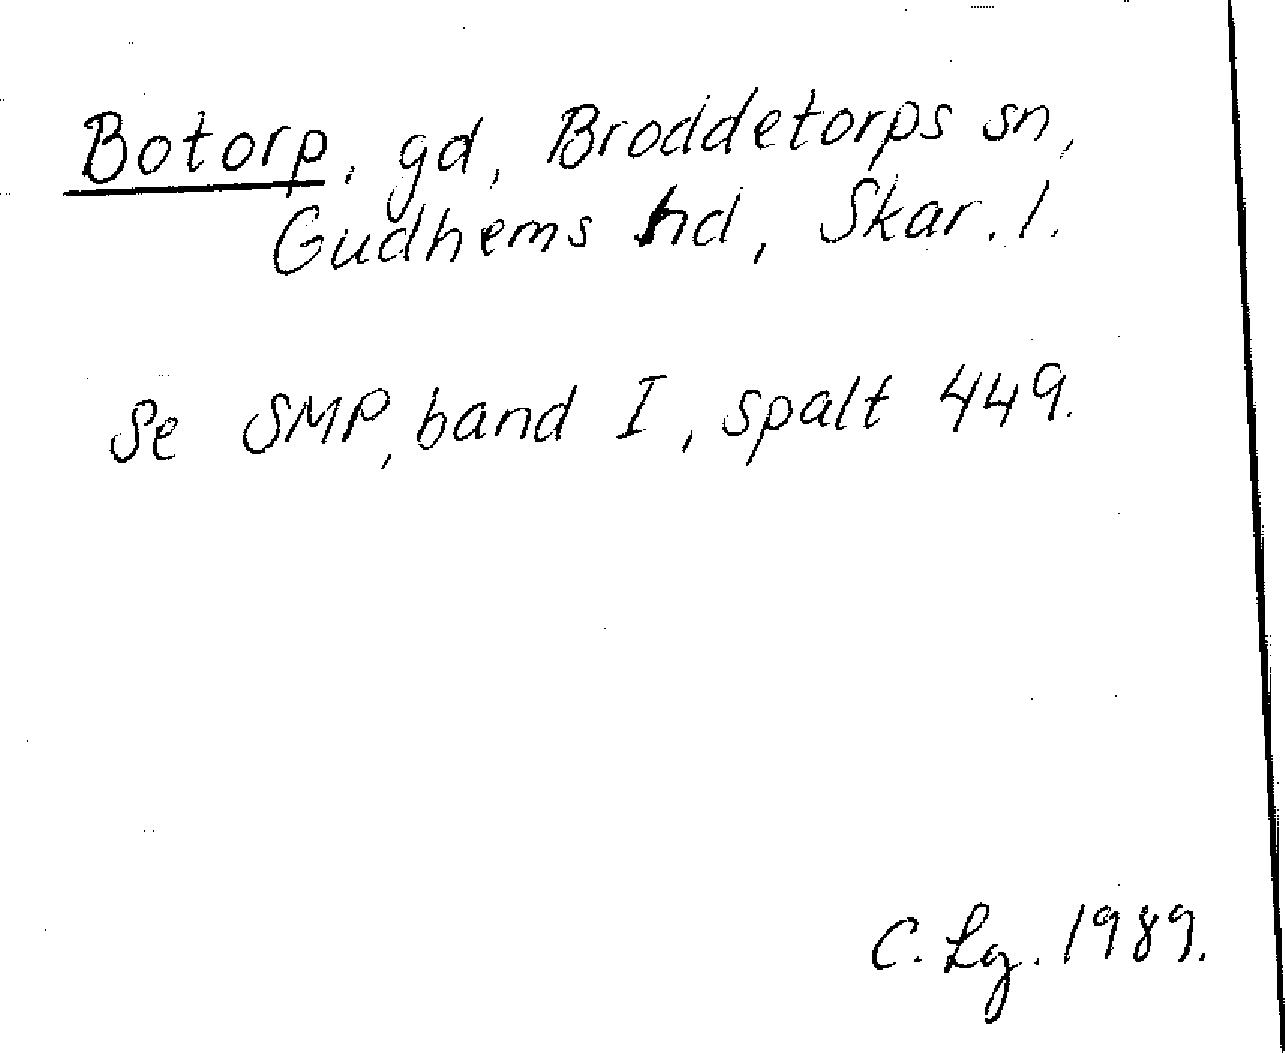 Botorp, gd, Broddetorps sn,
Gudhems hd, Skar. l.
Se SMP, band I, spalt 449.
C. Lg. 1989.